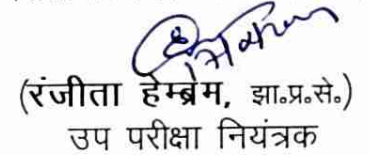 (रंजीता हेम्ब्रेम, झा॰प्र॰से॰)
उप परीक्षा नियंत्रक